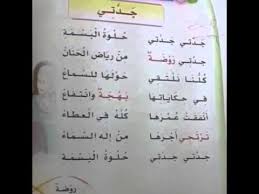 جَدَّتي
جَدَّتي جَدَّتي حُلْوَةُ الْبَسْمَةْ
جَدَّتي رَوْضَةٌ مِنْ رِياضِ الْحَنانْ
كُلُّنا نَلْتَقي حَوْلَها لِلسَّماعْ
في حِكاياتِها بَهْجَةٌ وانْتِفاعْ
أَنْفَقَتْ عُمْرَها كُلَّهُ في الْعَطاءْ
تَرْتَجي أَجْرَها مِنْ إِلهِ السَّماءْ
جَدَّتي جَدَّتي حُلْوَةُ الْبَسْمَةْ
رَوْضَة